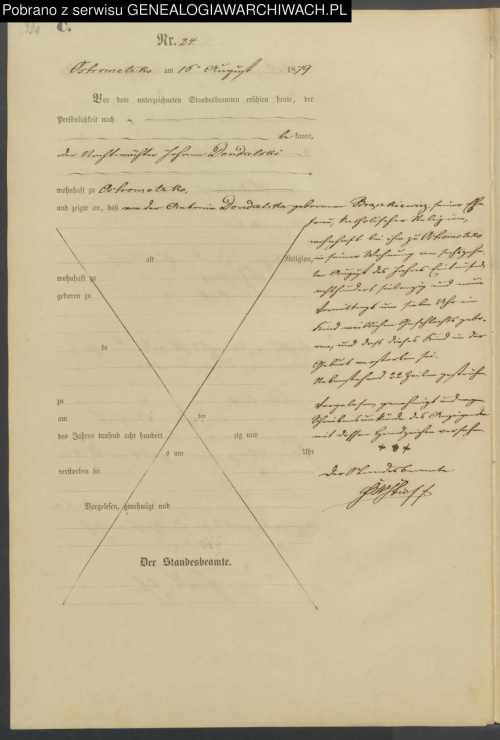 Pobrano z serwisu GENEALOGIAWARCHIWACH.PL
C.
Nr. 24.
Ostrometzko am 16ten August 1879
Vor dem unterzeichneten Standesbeamten erschien heute, der
Persönlichkeit nach
be kannt,
der Nachtwächter Johann Dondalski
wohnhaft zu Ostrometzko,
und zeigte an, daß von der Antonie Dondalska geborenen seiner Ehe-
frau, katholischer Religion,
wohnhaft bei ihm zu Ostrometzko
in seiner Wohnung am sechszehn-
ten August des Jahres Eintausend
achthundert siebenzig und neun
Vormittags um sieben Uhr ein
Kind weiblichen Geschlechts gebo-
ren, und daß dieses Kind in der
Geburt verstorben sei.
Nebenstehend 22 Zeilen gestrichen
Vorgelesen, genehmigt und wegen
Schreibensunkunde des Anzeigenden
mit dessen Handzeichen versehen
+ + +
Der Standesbeamte
alt Religion,
wohnhaft zu
geboren zu
de
zu
am ten
des Jahres tausend acht hundert zig und
s um Uhr
verstorben sei
Vorgelesen, genehmigt und
Der Standesbeamte.